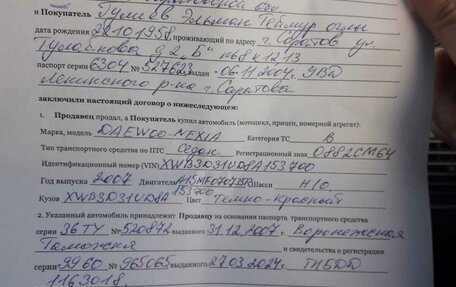 и Покупатель Гулиев Эльман Теймур оглы
дата рождения 22.10.1958, проживающий по адресу г. Саратов ул.
д 2 "Б"
паспорт серии 6304 № 587623 выдан 06.11.2004. УВД
Ленинского р-на г Саратова
заключили настоящий договор о нижеследующем:
1. Продавец продал, а Покупатель купил автомобиль (мотоцикл, прицеп, номерной агрегат):
Марка, модель DAEWOO-NEXIA Категория ТС B
Тип транспортного средства по ПТС Седан Регистрационный знак
Идентификационный номер (VIN) XWB3D31UD8A153700
Год выпуска 2007 Двигатель Шасси Н/О
Кузов XWB3D31UD8A 153700 Цвет Темно-Красный
2. Указанный автомобиль принадлежит Продавцу на основании паспорта транспортного средства
серии 36ТУ № 520872 выданного 31.12.2007 г. Воронежская
Таможня и свидетельства о регистрации
серии 9960 № 965065 выданного 27.03.2024 г. ГИБДД
1163018.